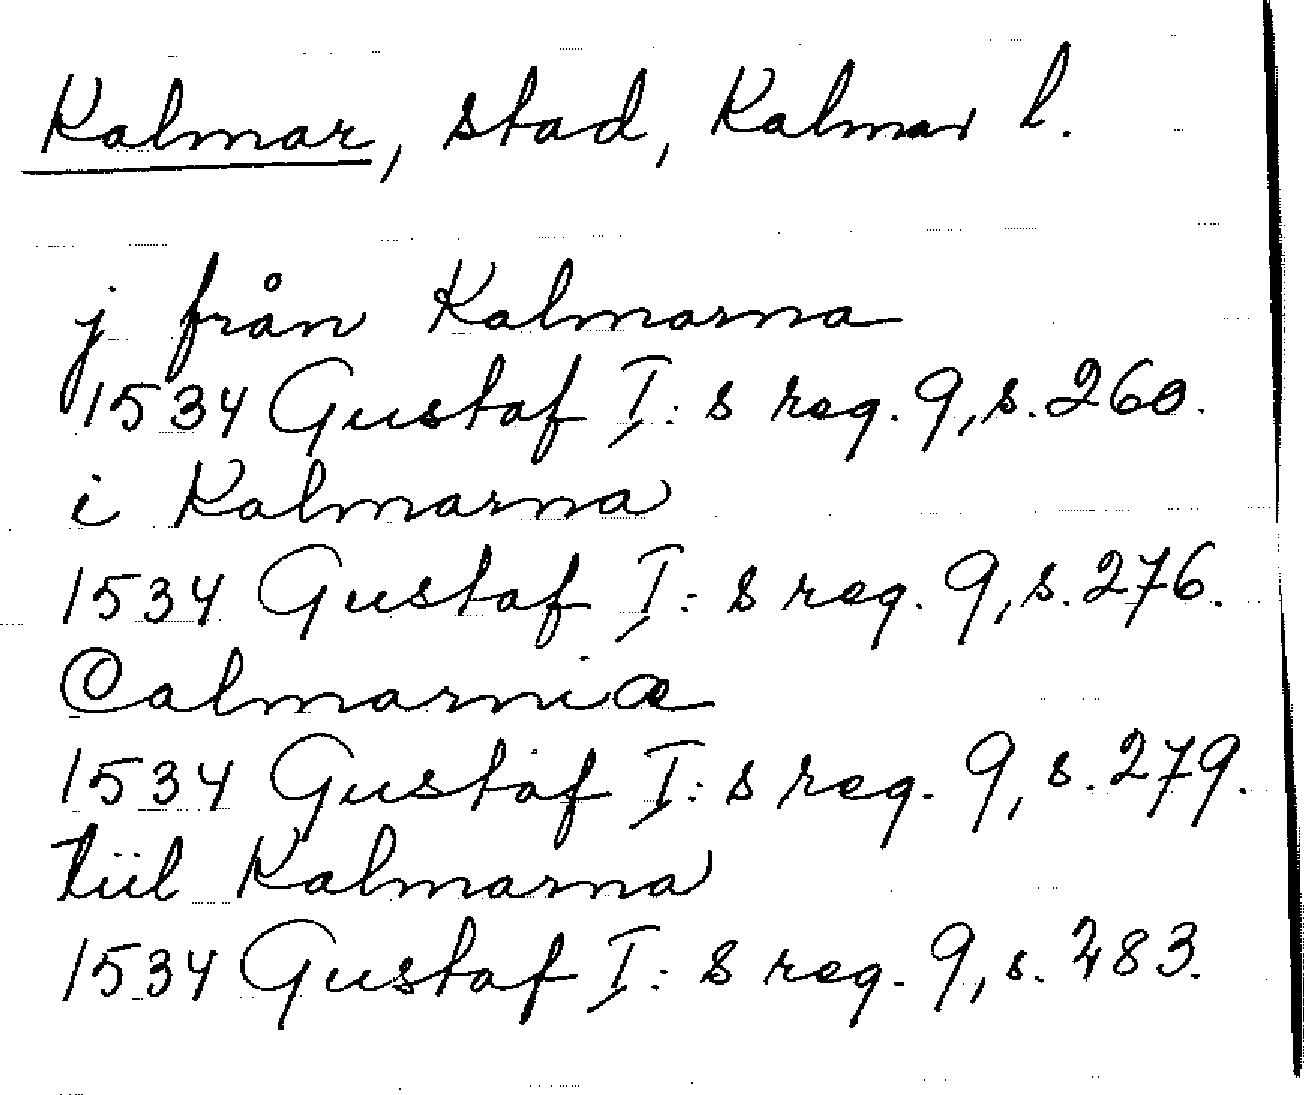 Kalmar, stad, Kalmar l.
j från Kalmarna
1534 Gustaf I:s reg. 9, s. 260.
i Kalmarna
1534 Gustaf I:s reg. 9, s. 276.
Calmarniæ
1534 Gustaf I:s reg. 9, s. 279.
tiil Kalmarna
1534 Gustaf I:s reg. 9, s.